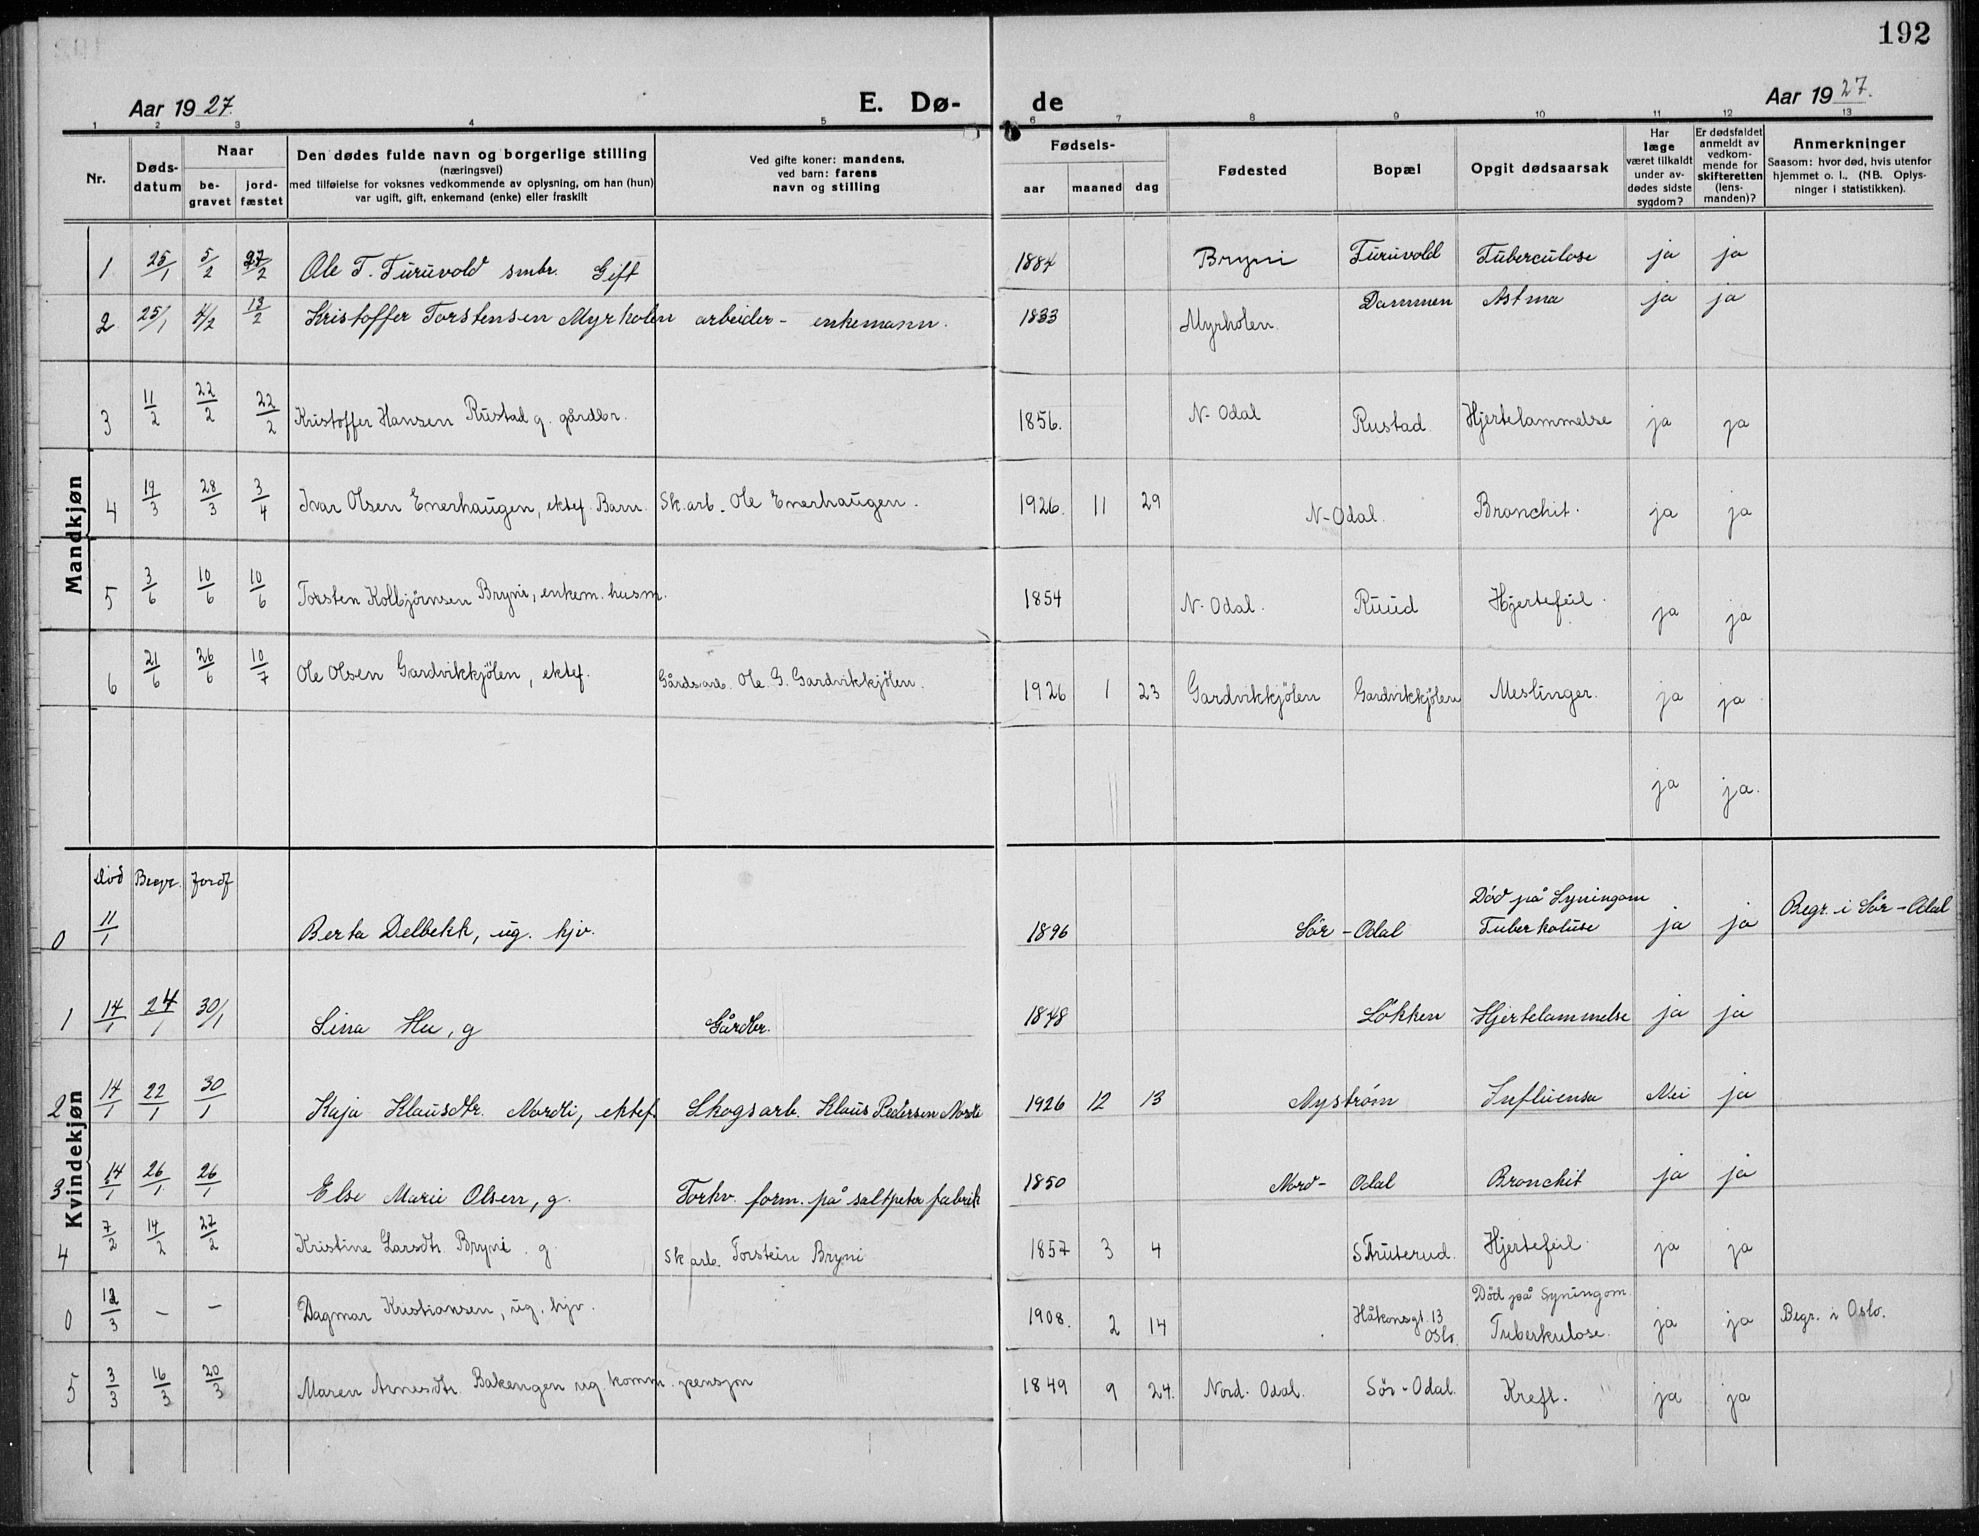 192
Aar 1927.
E. Dø-
de
Aar 1927.
1 2 3 4 5 6 7 8 9 10 11 12 13
Nr.
Døds-datum
Naar
be-gravet
jord-fæstet
Den dødes fulde navn og borgerlige stilling
(næringsvei)
med tilføielse for voksnes vedkommende av oplysning, om han (hun)
var ugift, gift, enkemand (enke) eller fraskilt
Ved gifte koner: mandens,
ved barn: farens
navn og stilling
Fødsels-
aar maaned dag
Fødested
Bopæl
Opgit dødsaarsak
Har læge været tilkaldt under av-dødes sidste sygdom?
Er dødsfaldet anmeldt av vedkom-mende for skifteretten (lens-manden)?
Anmerkninger
Saasom: hvor død, hvis utenfor
hjemmet o. l., (NB. Oplys-
ninger i statistikken).
Mandkjøn
1 25/1 5/2 27/2 Ole T. Furuvold smbr. Gift 1884 Bryni Furuvold Tuberculose ja ja
2 25/1 4/2 13/2 Kristoffer Torstensen Myrholen arbeider - enkemann. 1833 Myrholen Dammen Astma ja ja
3 11/2 22/2 22/2 Kristoffer Hansen Rustad g. gårdbr. 1856. N-Odal Rustad. Hjertelammelse ja ja
4 19/3 28/3 3/4 Ivar Olsen Enerhaugen, ektef. Barn. Sk.arb. Ole Enerhaugen. 1926. 11 29 N-Odal. Bronchit. ja ja
5 3/6 10/6 10/6 Torsten Kolbjørnsen Bryni, enkem. husm. 1854 N-Odal. Ruud Hjertefeil. ja ja
6 21/6 26/6 10/7 Ole Olsen Gardvikkjølen, ektef. Gårdsarb. Ole G. Gardvikkjølen. 1926 1 23 Gardvikkjølen Gardvikkjølen Meslinger. ja ja
ja ja.
Kvindekjøn
Død Begr. Jordf
0 11/1 Berta Delbekk, ug. hjv. 1896 Sör-Odal Död på Syningom Tuberkolose ja ja Begr. i Sör-Odal
1 14/1 24/1 30/1 Sina Hu, g Gårdbr. 1848 Lökken Hjertelammelse ja ja
2 14/1 22/1 30/1 Kaja Klausdtr. Nordli, ektef Skogsarb. Klaus Pedersen Nordli 1926 12 13 Nystrøm Influensa Nei ja
3 14/1 26/1 26/1 Else Marie Olsen, g. Forhv. form. på saltpeterfabrik 1850 Nord-Odal Bronchit ja ja
4 7/2 14/2 27/2 Kristine Larsdtr. Bryni. g. Sk arb. Torstein Bryni 1857 3 4 Struterud. Hjertefeil. ja ja
0 12/3 - - Dagmar Kristiansen, ug. hjv. 1908. 2 14 Håkonsgt. 13 Oslo. Död på Syningom. Tuberkulose. ja ja Begr. i Oslo.
5 3/3 16/3 20/3 Maren Arnesdtr. Bakengen ug. komm. pensjon 1849 9 24. Nord-Odal. Sör-Odal. Kreft. ja ja